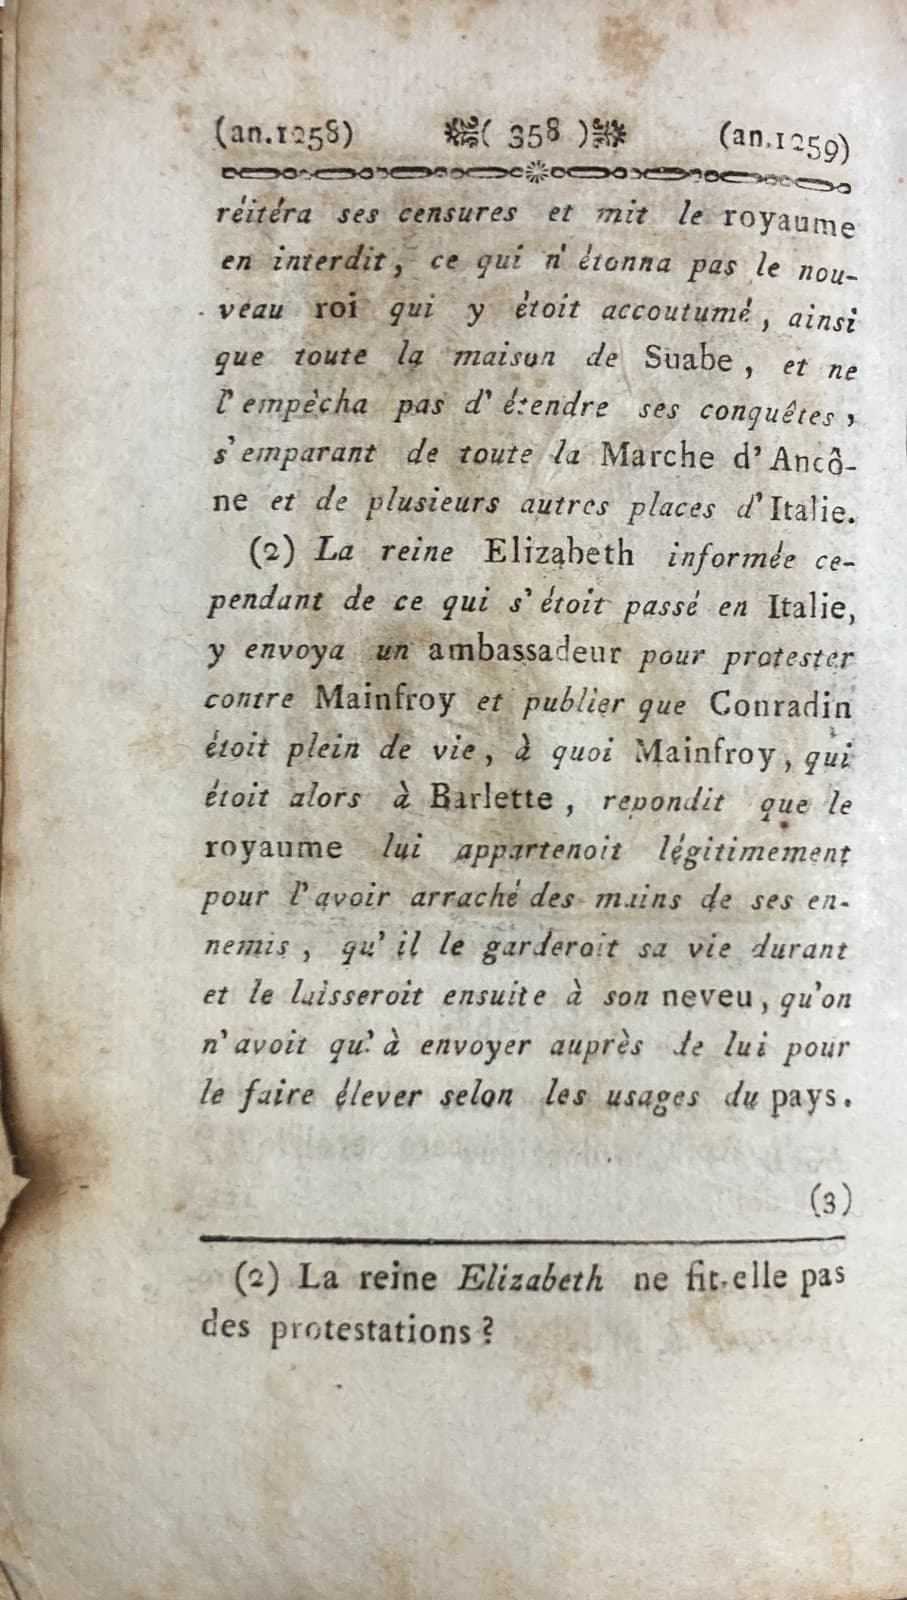 (an.1258) ( 358 ) (an.1259)
réitéra ses censures et mit le royaume
en interdit, ce qui n'étonna pas le nou-
veau roi qui y étoit accoutumé, ainsi
que toute la maison de Suabe, et ne
l'empêcha pas d'étendre ses conquêtes,
s'emparant de toute la Marche d'Ancô-
ne et de plusieurs autres places d'Italie.
(2) La reine Elizabeth informée ce-
pendant de ce qui s'étoit passé en Italie,
y envoya un ambassadeur pour protester
contre Mainfroy et publier que Conradin
étoit plein de vie, à quoi Mainfroy, qui
étoit alors à Barlette, repondit que le
royaume lui appartenoit légitimement
pour l'avoir arraché des mains de ses en-
nemis, qu'il le garderoit sa vie durant
et le laisseroit ensuite à son neveu, qu'on
n'avoit qu'à envoyer auprès de lui pour
le faire élever selon les usages du pays.
(3)
(2) La reine Elizabeth ne fit-elle pas
des protestations?